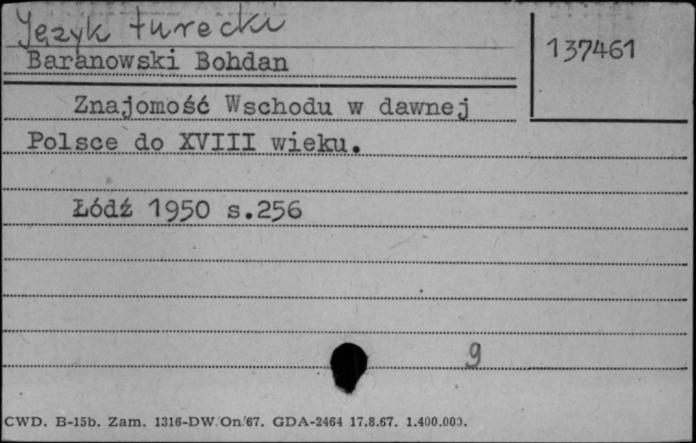 Język turecki
137461
Baranowski Bohdan
Znajomość Wschodu w dawnej
Polsce do XVIII wieku.
Łódź 1950 s.256
9
CWD. B-15b. Zam. 1316-DW.On/67. GDA-2464 17.8.67. 1.400.000.